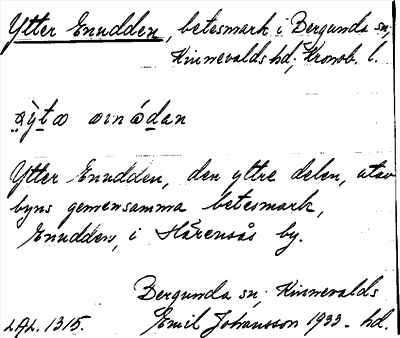 Ytter Enudden, betesmark i Bergunda sn,
Kinnevalds hd, Kronob. l.
Ytter Enudden, den yttre delen, utav
byns gemensamma betesmark,
Enudden, i Härensås by.
Bergunda sn, Kinnevalds
LAL. 1315. Emil Johansson 1933. hd.